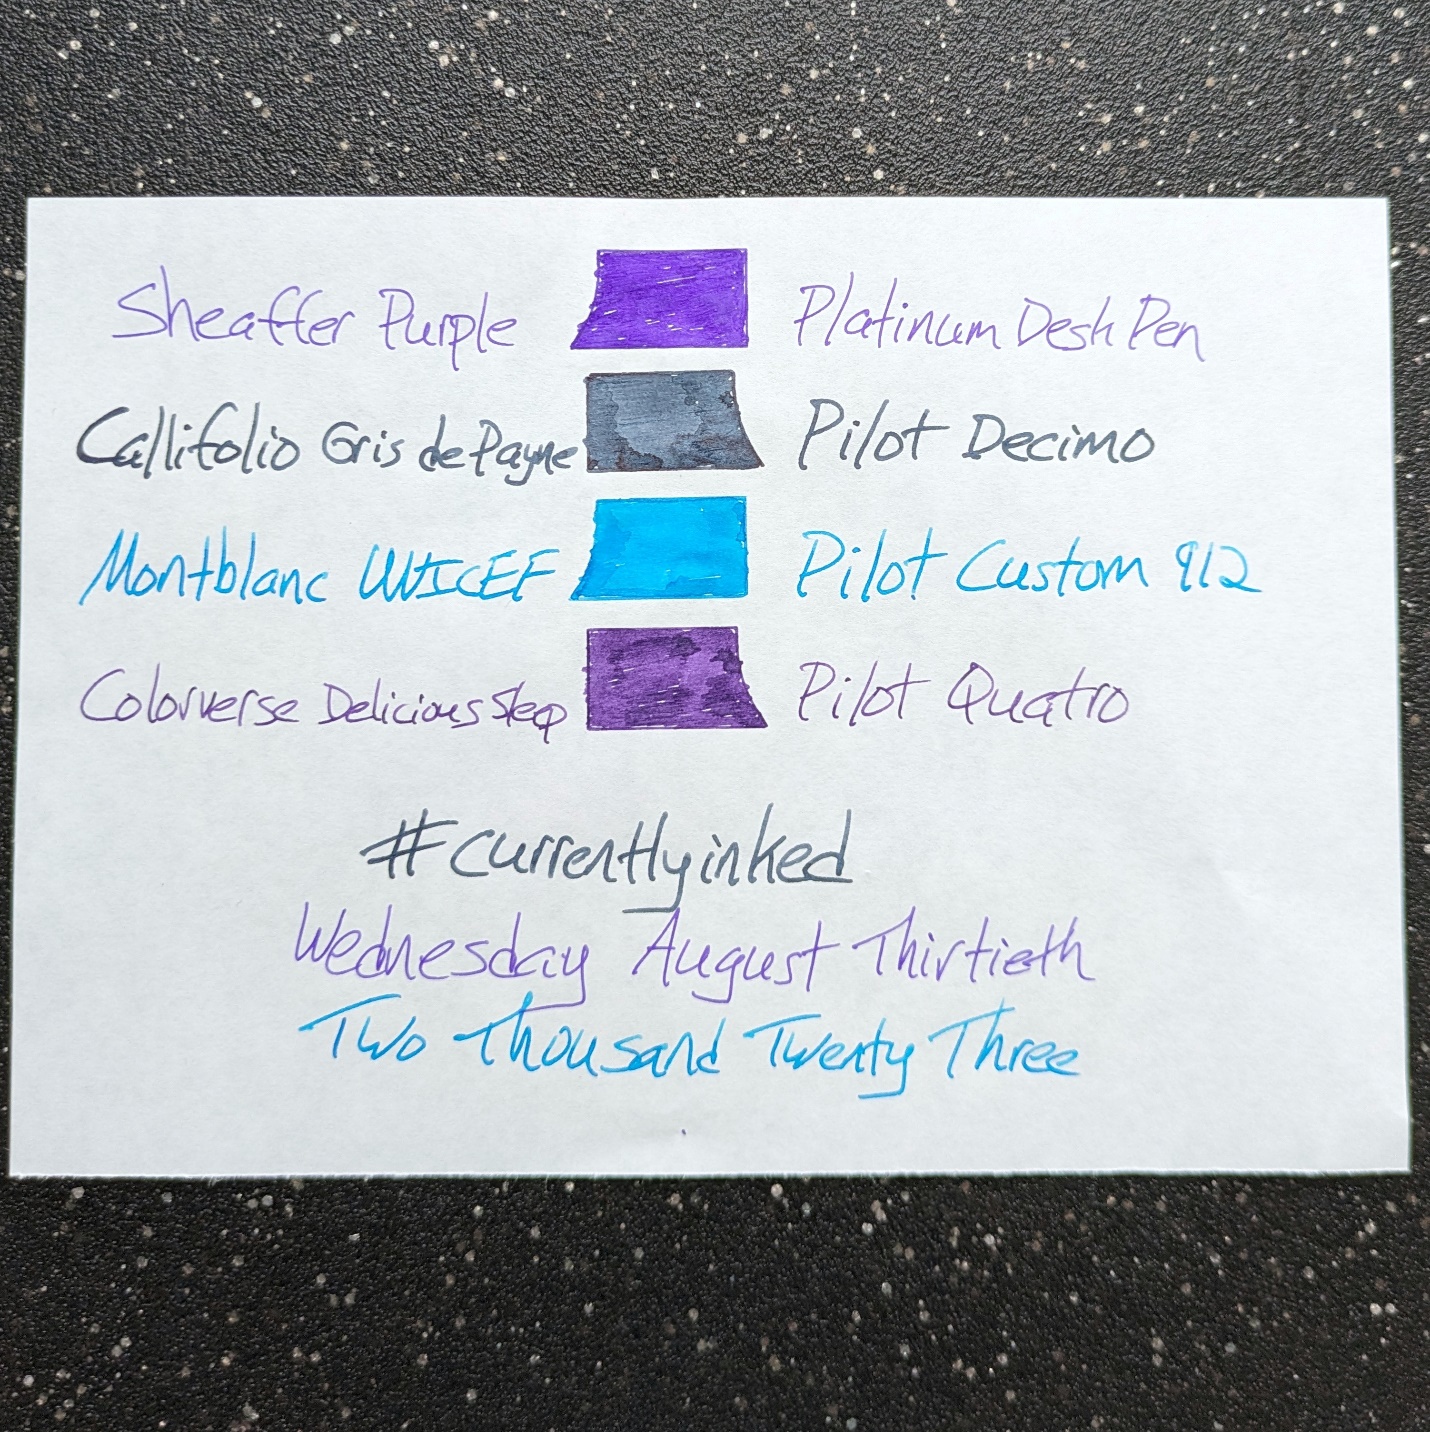 Sheaffer Purple Platinum Desk Pen
Callifolio Gris de Payne Pilot Decimo
Montblanc UNICEF Pilot Custom 912
Colorverse Delicious Sleep Pilot Quatro
#currentlyinked
Wednesday August Thirtieth
Two Thousand Twenty Three